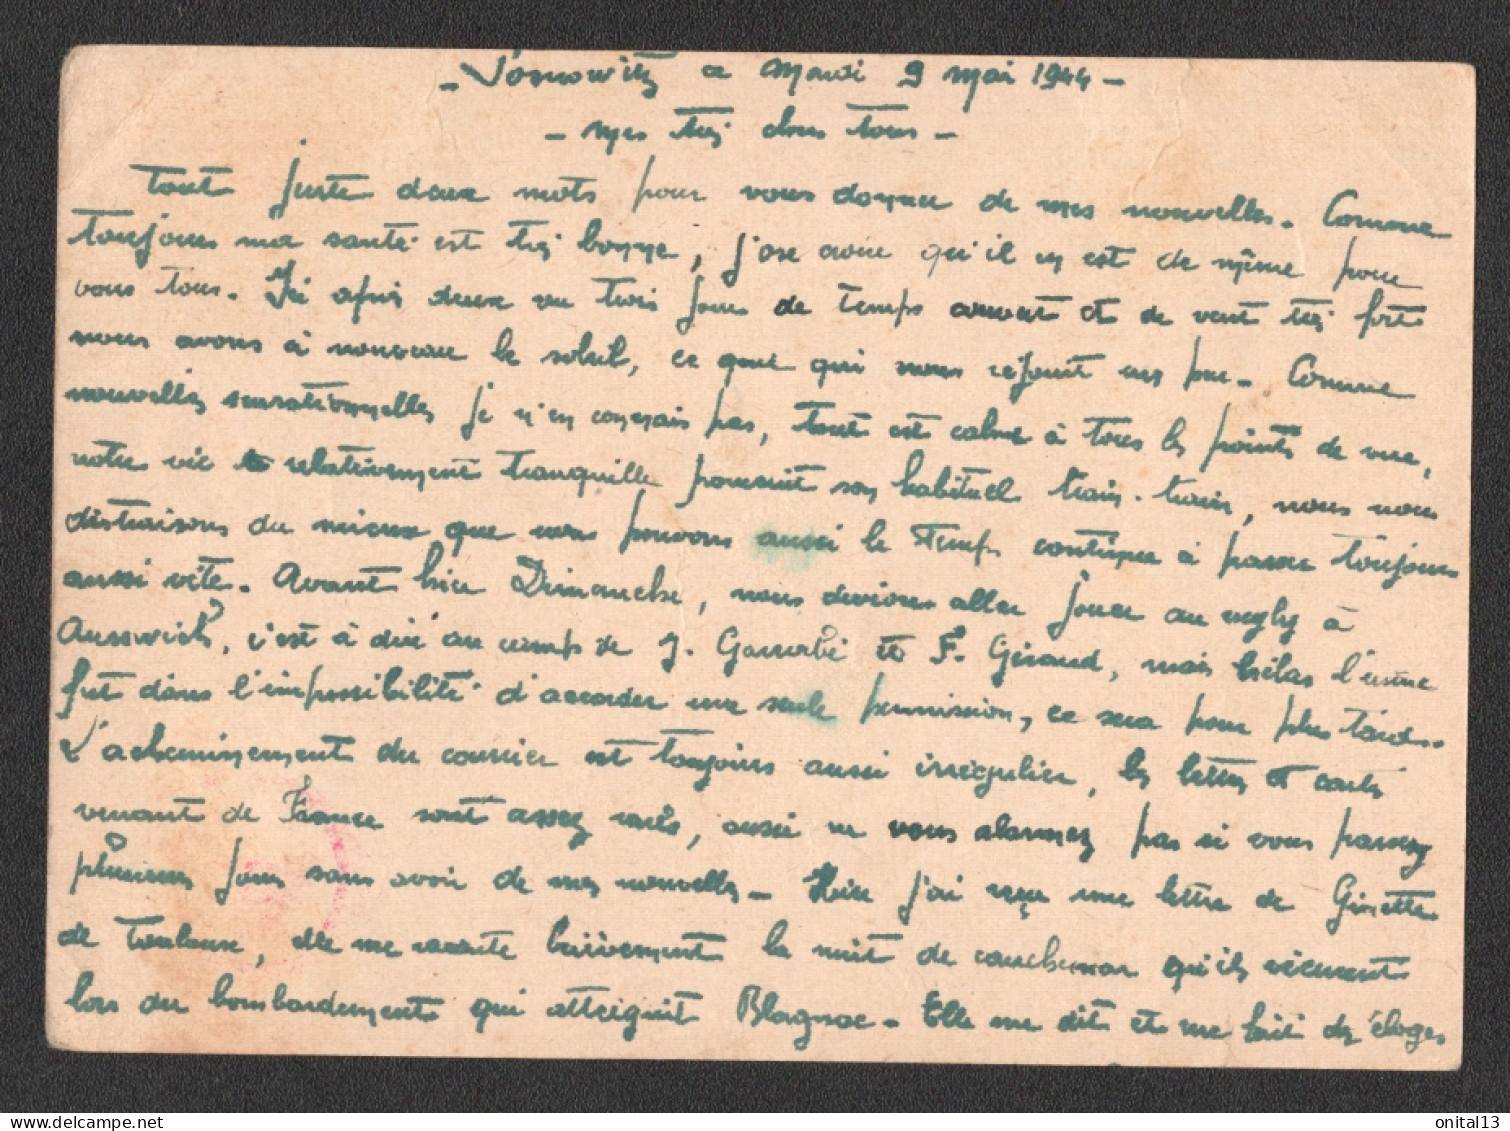 - Sosnowitz ce Mardi 9 Mai 1944 -
- Mes très chers tous -
Tout juste deux mots pour vous donner de mes nouvelles. Comme
toujours ma santé est très bonne, j'ose croire qu'il en est de même pour
vous tous. Ici après deux ou trois jours de temps couvert et de vent très fort
nous avons à nouveau le soleil, ce que qui nous réjouit un peu. Comme
nouvelles sensationnelles je n'en connais pas, tout est calme à tous les points de vue,
notre vie relativement tranquille poursuit son habituel train-train, nous nous
distraisons du mieux que nous pouvons aussi le temps continue à passer toujours
aussi vite. Avant hier Dimanche, nous devions aller jouer au rugby à
Ausswich, c'est à dire au camp de J. et F. Giraud, mais hélas l'usine
fut dans l'impossibilité d'accorder une seule permission, ce sera pour plus tard.
L'acheminement du courrier est toujours aussi irrégulier, les lettres et cartes
venant de France sont assez rares, aussi ne vous alarmez pas si vous passez
plusieurs jours sans avoir de mes nouvelles - Hier j'ai reçu une lettre de Ginette
de Toulouse, elle me raconte brièvement la nuit de cauchemar qu'ils vécurent
lors du bombardement qui atteignit Blagnac - Elle me dit et me fait des éloges
onital13